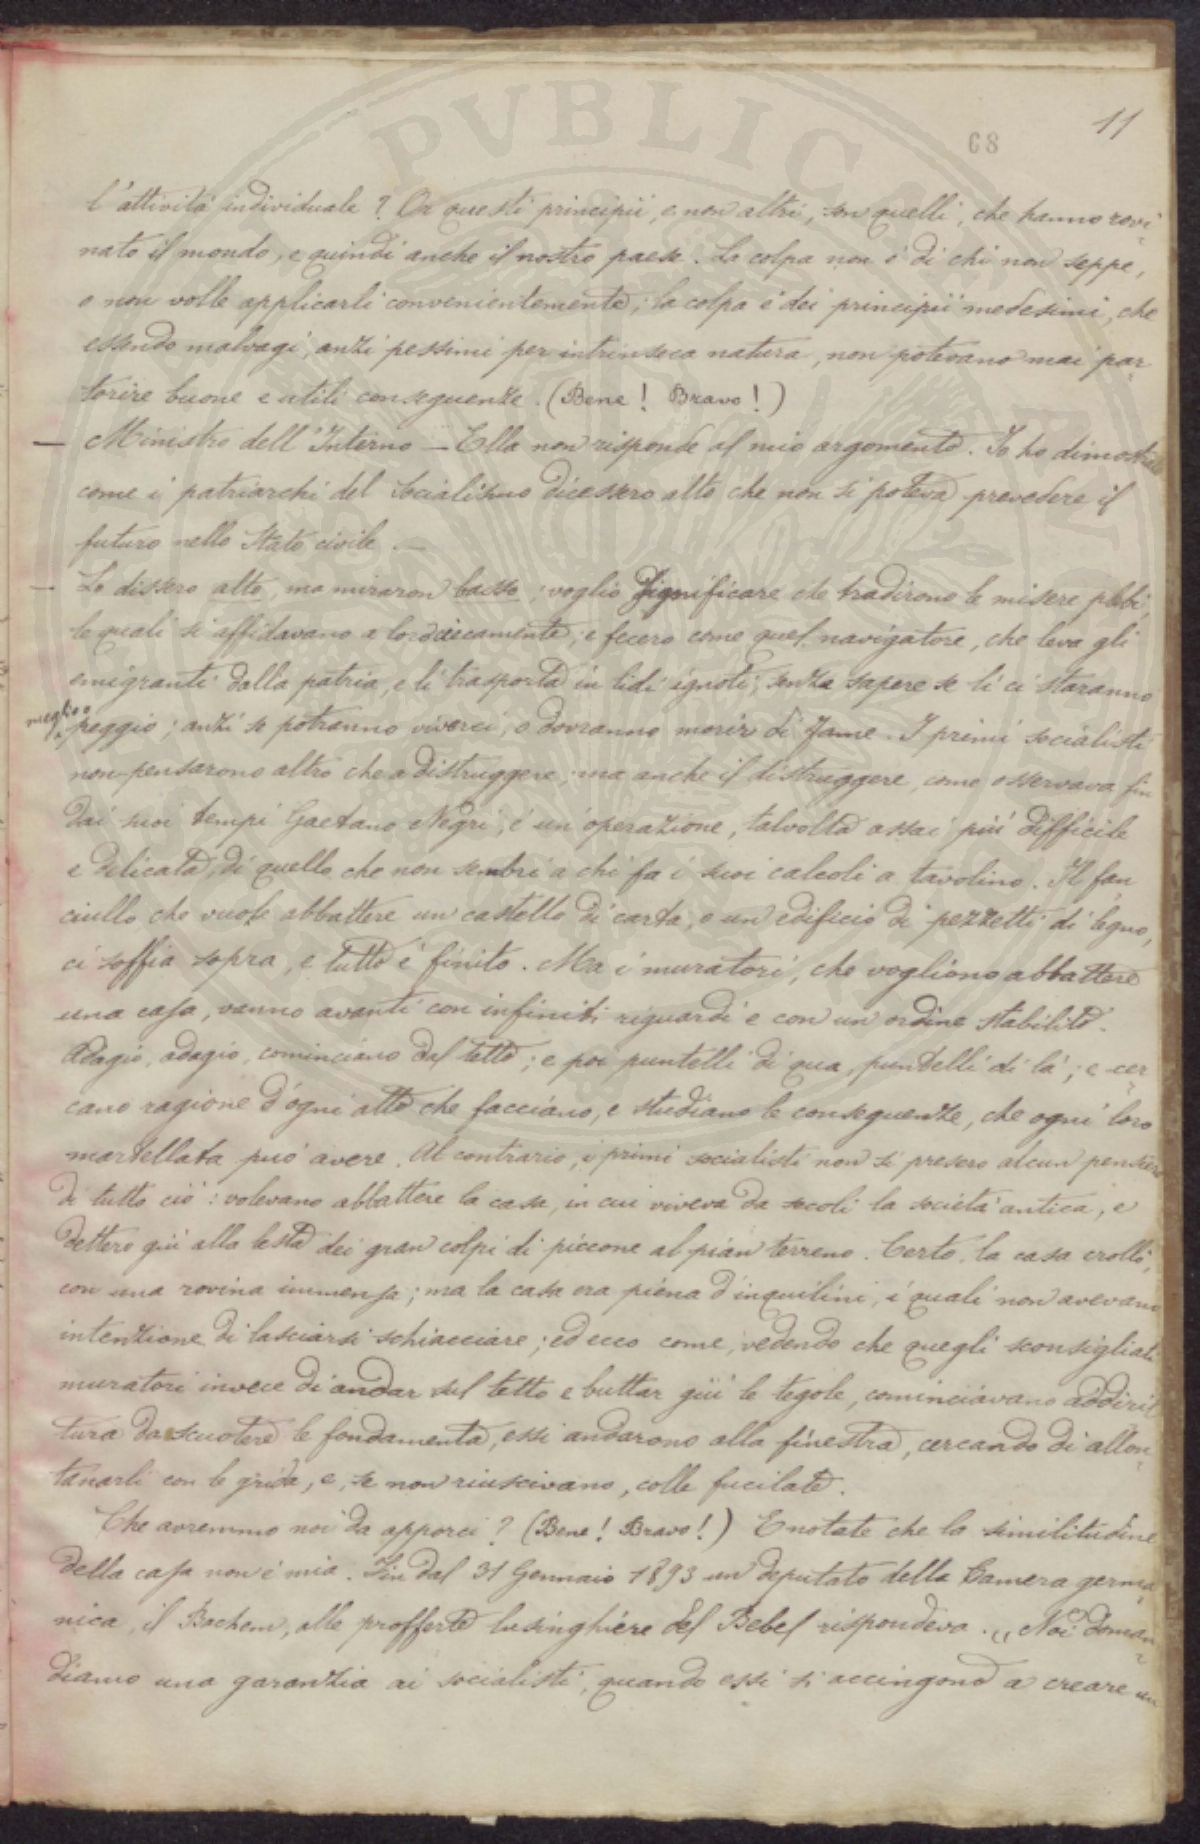 11
68
l'attività individuale? Or questi principii, e non altri, son quelli, che hanno rovi-
nato il mondo, e quindi anche il nostro paese. La colpa non è di chi non seppe,
o non volle applicarli convenientemente; la colpa è dei principii medesimi, che
essendo malvagi, anzi pessimi per intrinseca natura, non potevano mai par-
torire buone e utili conseguenze. (Bene! Bravo!)
— Ministro dell'Interno — Ella non risponde al mio argomento. Io ho dimostrato
come i patriarchi del Socialismo dicessero alto che non si poteva prevedere il
futuro nello Stato civile. —
— Lo dissero alto, ma miraron basso; voglio significare che tradirono le misere plebi,
le quali si affidavano a loro ciecamente; e fecero come quel navigatore, che leva gli
emigranti dalla patria, e li trasporta in lidi ignoti, senza sapere se lì ci staranno
meglio o peggio; anzi se potranno viverci, o dovranno morir di fame. I primi socialisti
non pensarono altro che a distruggere; ma anche il distruggere, come osservava fin
dai suoi tempi Gaetano Negri, è un'operazione, talvolta assai più difficile
e delicata, di quello che non sembri a chi fa i suoi calcoli a tavolino. Il fan-
ciullo che vuole abbattere un castello di carta, o un edificio di pezzetti di legno,
ci soffia sopra, e tutto è finito. Ma i muratori, che vogliono abbattere
una casa, vanno avanti con infiniti riguardi e con un ordine stabilito.
Adagio, adagio, cominciano dal tetto; e poi puntelli di qua, puntelli di là; e cer-
cano ragione d'ogni atto che facciano, e studiano le conseguenze, che ogni loro
martellata può avere. Al contrario, i primi socialisti non si presero alcun pensiero
di tutto ciò: volevano abbattere la casa, in cui viveva da secoli la società antica, e
dettero giù alla lesta dei gran colpi di piccone al pian terreno. Certo, la casa crollò,
con una rovina immensa; ma la casa era piena d'inquilini, i quali non avevano
intenzione di lasciarsi schiacciare; ed ecco come, vedendo che quegli sconsigliati
muratori invece di andar sul tetto e buttar giù le tegole, cominciavano addirit-
tura da scuotere le fondamenta, essi andarono alla finestra, cercando di allon-
tanarli con le grida, e, se non riuscivano, colle fucilate.
Che avremmo noi da apporci? (Bene! Bravo!) E notate che la similitudine
della casa non è mia. Fin dal 31 Gennaio 1893 un deputato della Camera germa-
nica, il Bachem, alle profferte lusinghiere del Bebel rispondeva. „ Noi doman-
diamo una garanzia ai socialisti, quando essi si accingono a creare un